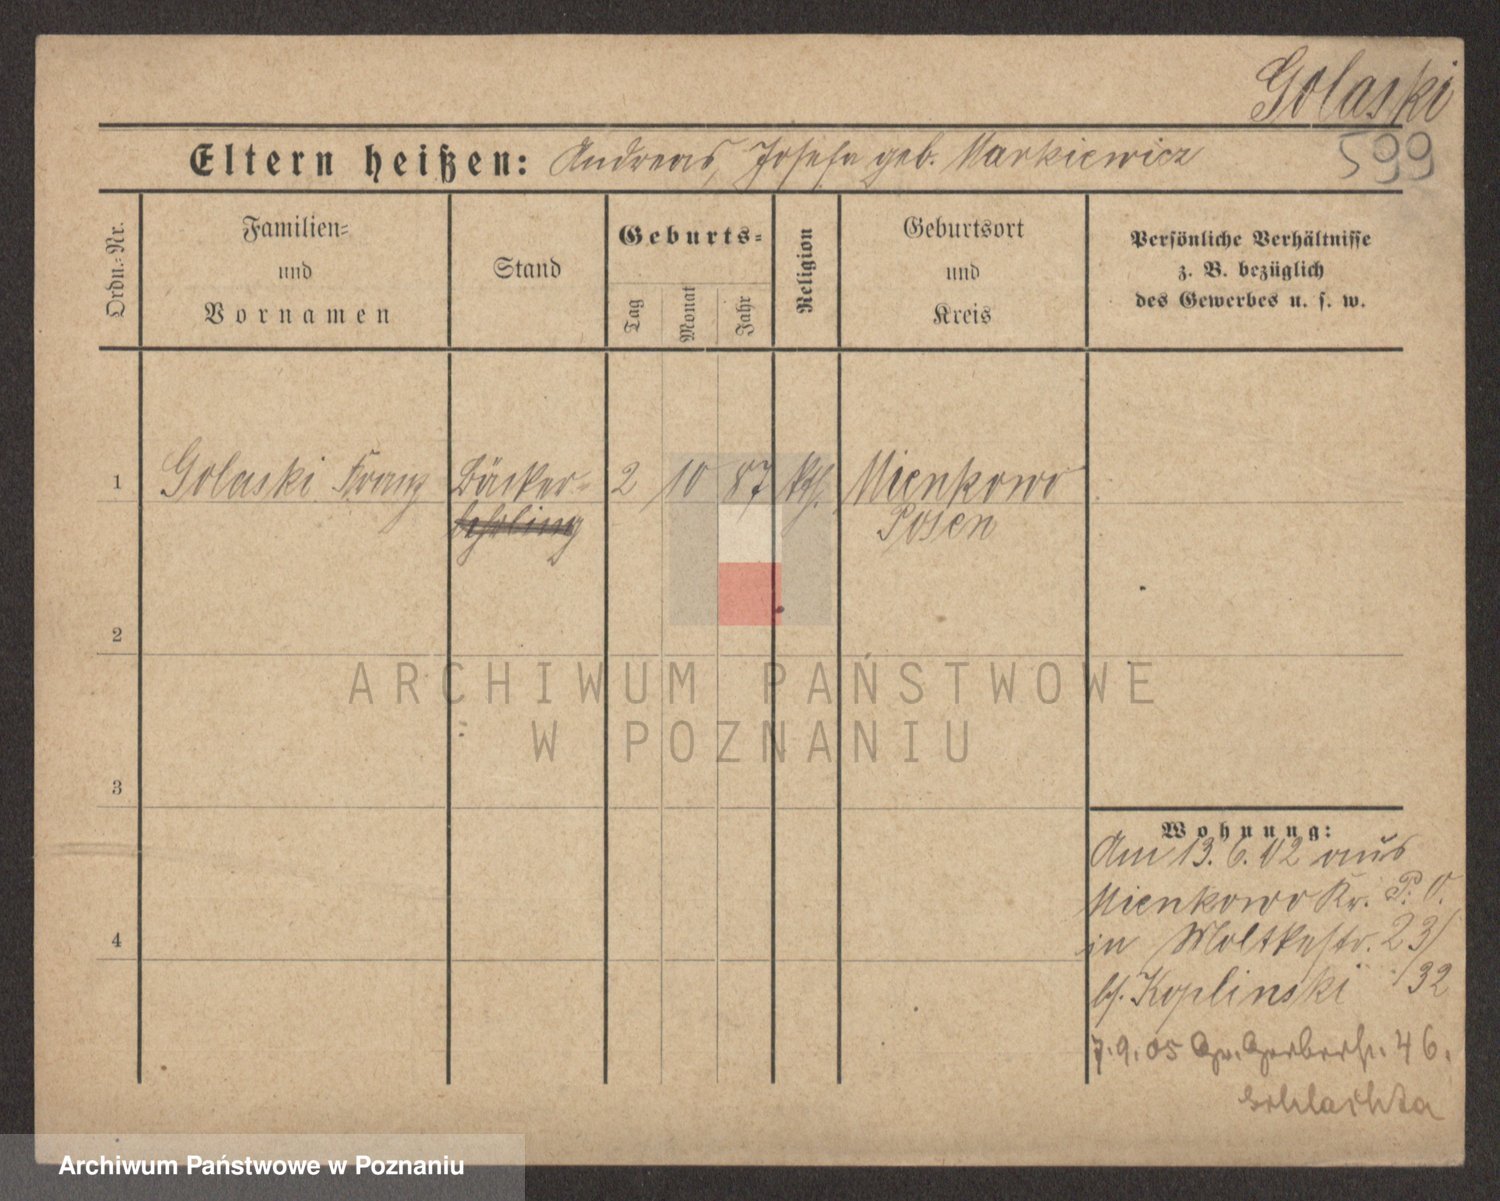 Golaski
599
Eltern heißen: Andreas, Josefa geb. Markiewicz
Ordn.-Nr.
Familien-
und
Vornamen
Stand
Geburts-
Tag
Monat
Jahr
Religion
Geburtsort
und
Kreis
Persönliche Verhältnisse
z. B. bezüglich
des Gewerbes u. s. w.
1 Golaski Franz Bäcker- 2 10 87 kth. Mienkowo
lehrling Posen
2
3
4
ARCHIWUM PAŃSTWOWE
W POZNANIU
Wohnung:
Am 13. 6. 02 aus
Mienkowo Kr. P. O.
in Moltkestr. 23/
bf. Koplinski /32
7. 9. 05 Gr. Gerberstr. 46.
Archiwum Państwowe w Poznaniu